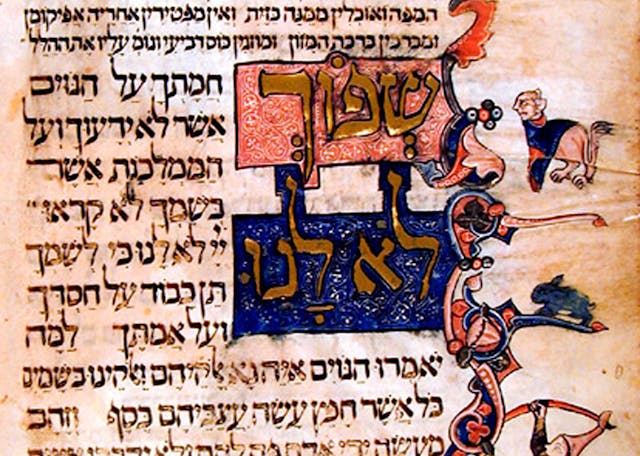 המפה ואוכלין ממנה כזית ואין מפטירין אחריה אפיקומן
ומברכין ברכת המזון ומוזגין כוס רביעי וגומ עליו את ההלל
שְפוֹךְ
חֲמָתְךָ עַל הַגּוֹיִם
אֲשֶׁר לֹא יְדָעוּךָ וְעַל
הַמַּמְלָכֹת אֲשֶׁר
בְּשִׁמְךָ לֹא קָרָאוּ
לֹא לָנוּ
יְיָ לֹא לָנוּ כִּי לְשִׁמְךָ
תֵּן כָּבוֹד עַל חַסְדְּךָ
וְעַל אֲמִתֶּךָ לָמָּה
יֹאמְרוּ הַגּוֹיִם אַיֵּה נָא אֱלֹהֵיהֶם וֵאלֹקֵינוּ בַשָּׁמַיִם
כֹּל אֲשֶׁר חָפֵץ עָשָׂה עֲצַבֵּיהֶם כֶּסֶף וְזָהָב
מַעֲשֵׂה יְדֵי אָדָם פֶּה לָהֶם וְלֹא יְדַבֵּרוּ